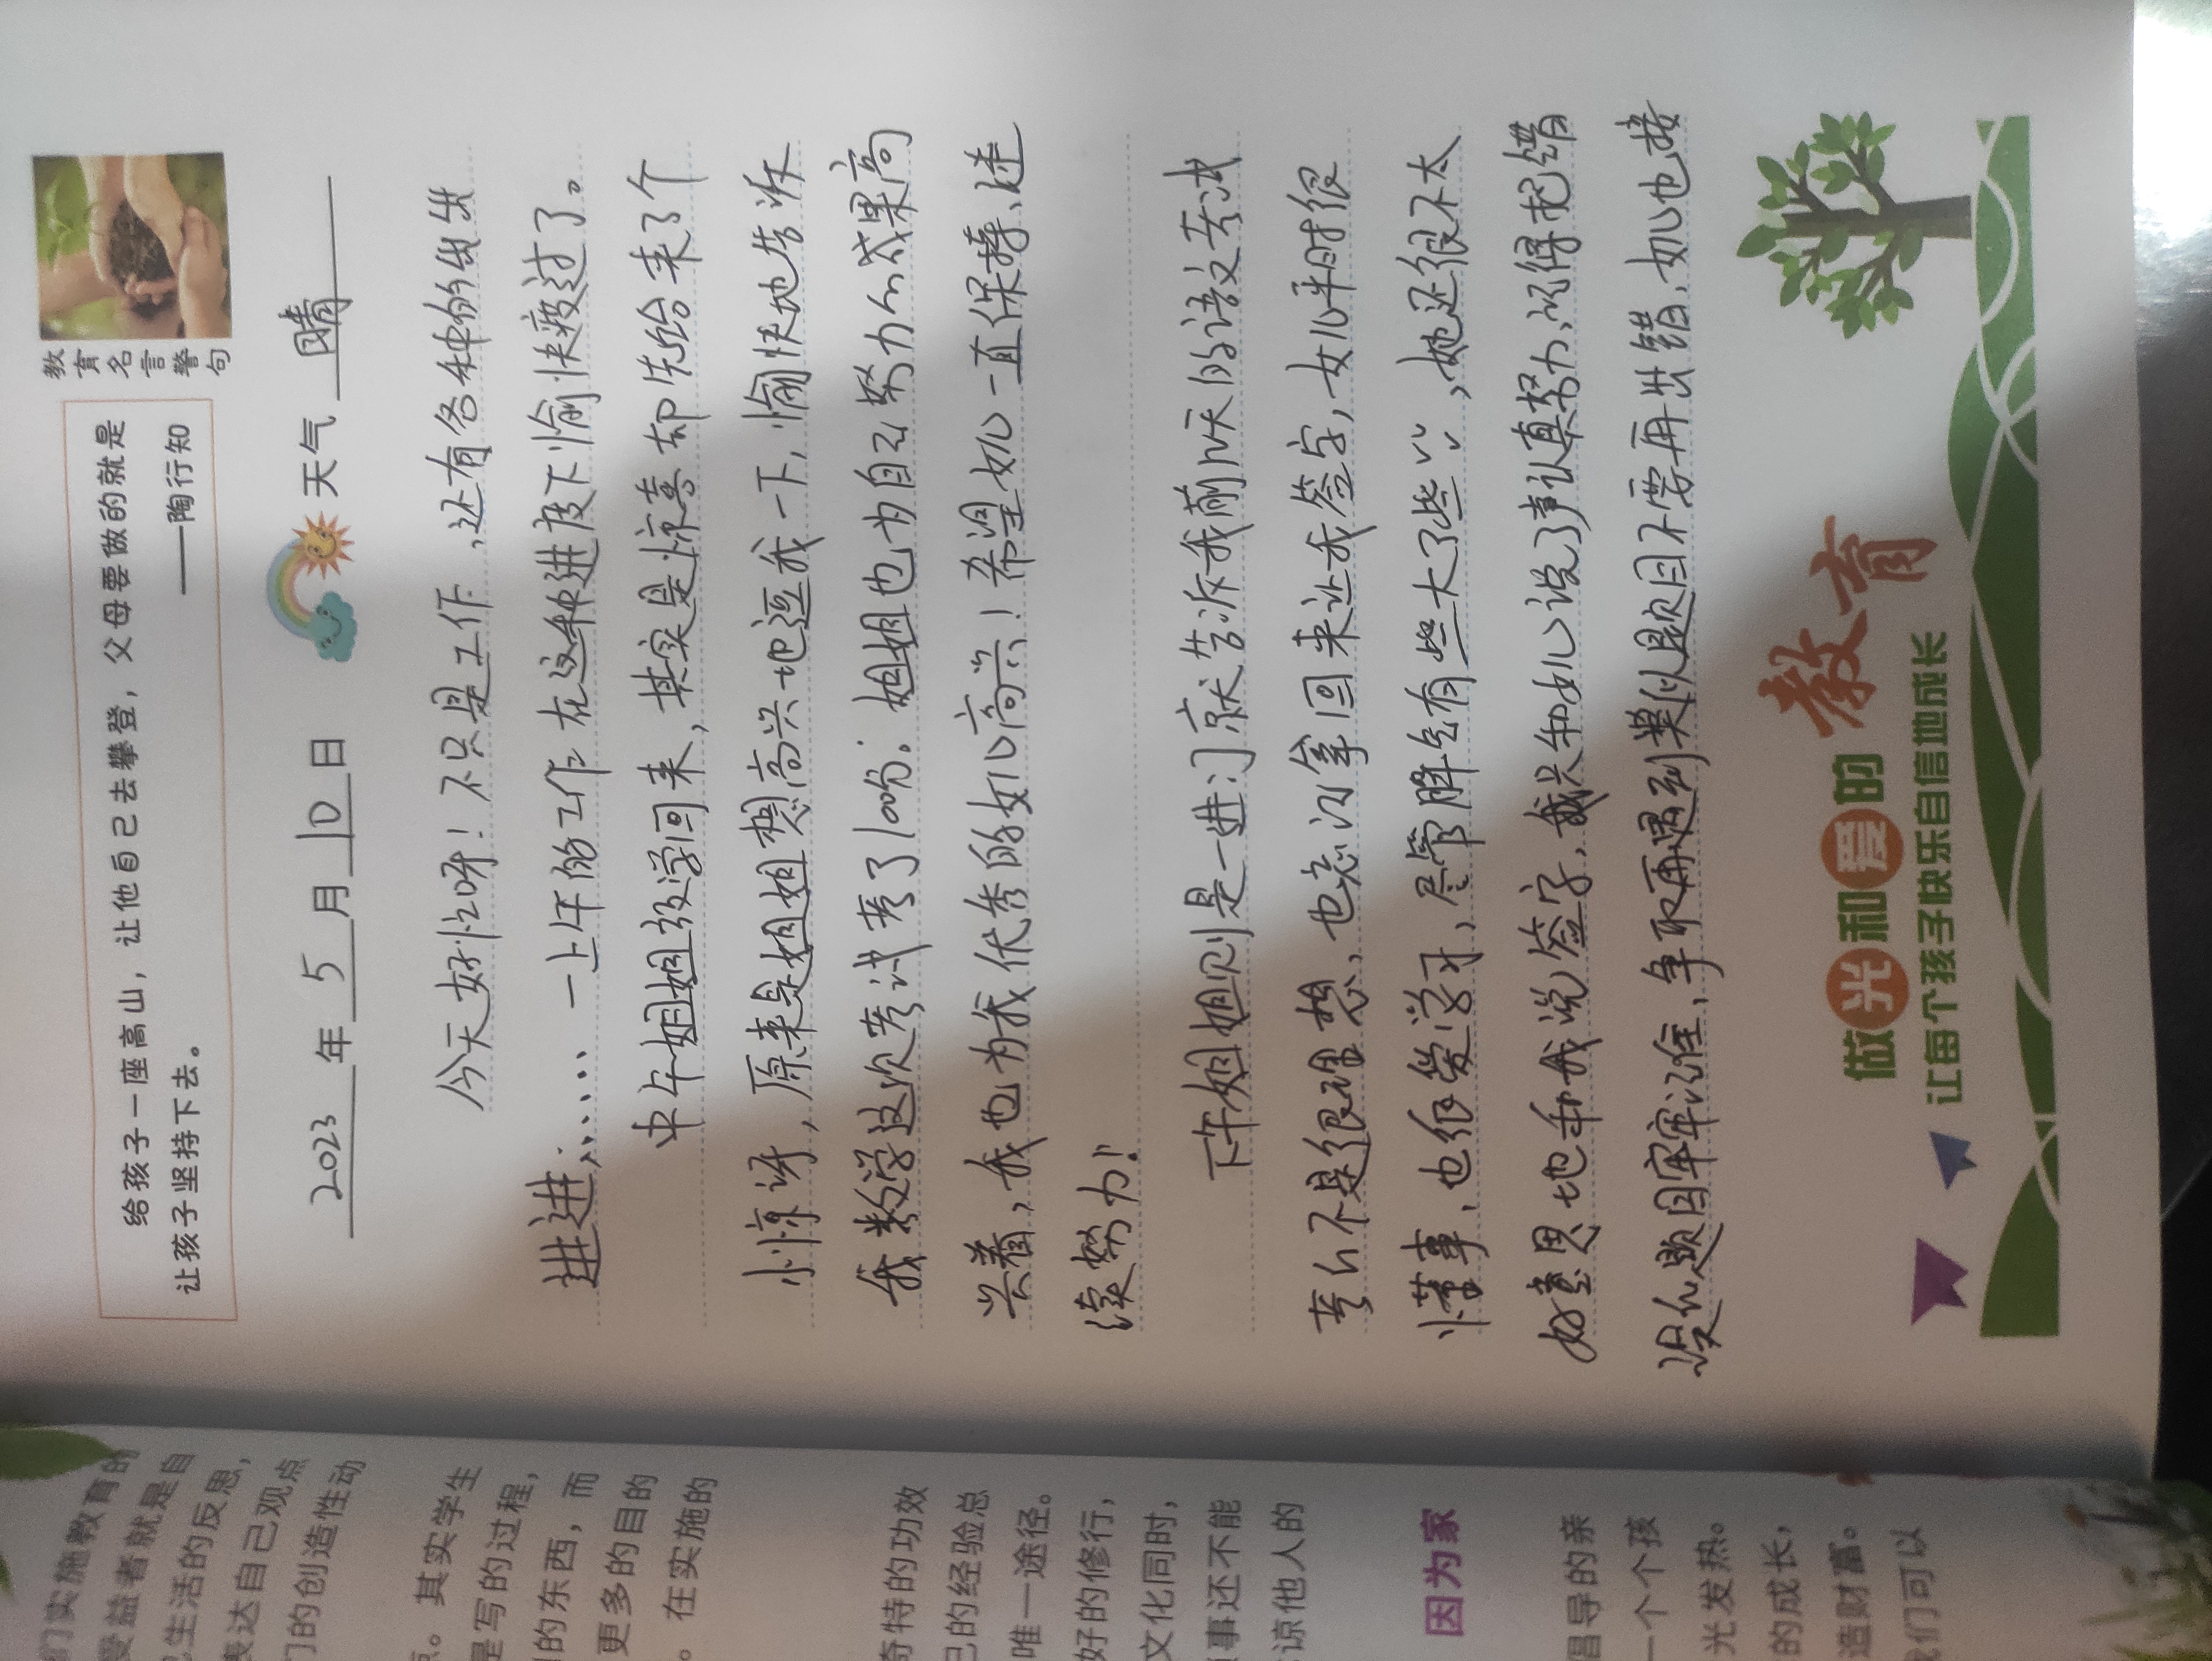 给孩子一座高山，让他自己去攀登，父母要做的就是
让孩子坚持下去。
——陶行知
教育名言警句
2023年5月10日 天气 晴
今天好忙呀！不只是工作，还有各种的出出
进进……一上午的工作在这种进度下愉快度过了。
中午姐姐放学回来，其实是惊喜却先给来了个
小惊讶，原来是姐姐想高兴地逗我一下，愉快地告诉
我数学这次考试考了100分。姐姐也为自己努力的成果高
兴着，我也为我优秀的女儿高兴！希望女儿一直保持、继
续努力！
下午姐姐则是一进门就告诉我前几天的语文考试
考的不是很理想，也忘记拿回来让我签字，女儿平时很
懂事、也很爱学习，尽管脾气有些大了些，她还很不太
好意思地和我说签字，我只和女儿说了声认真努力，记得把错
误的题目牢牢记准，争取再遇到类似题目不要再出错，女儿也接
做光和爱的教育
让每个孩子快乐自信地成长
们实施教育的
受益者就是自
己生活的反思，
表达自己观点
们的创造性动
点。其实学生
是写的过程，
的东西，而
更多的目的
。在实施的
奇特的功效
己的经验总
唯一途径。
好的修行，
文化同时，
事还不能
谅他人的
因为家
倡导的亲
一个个孩
光发热。
的成长，
造财富。
我们可以